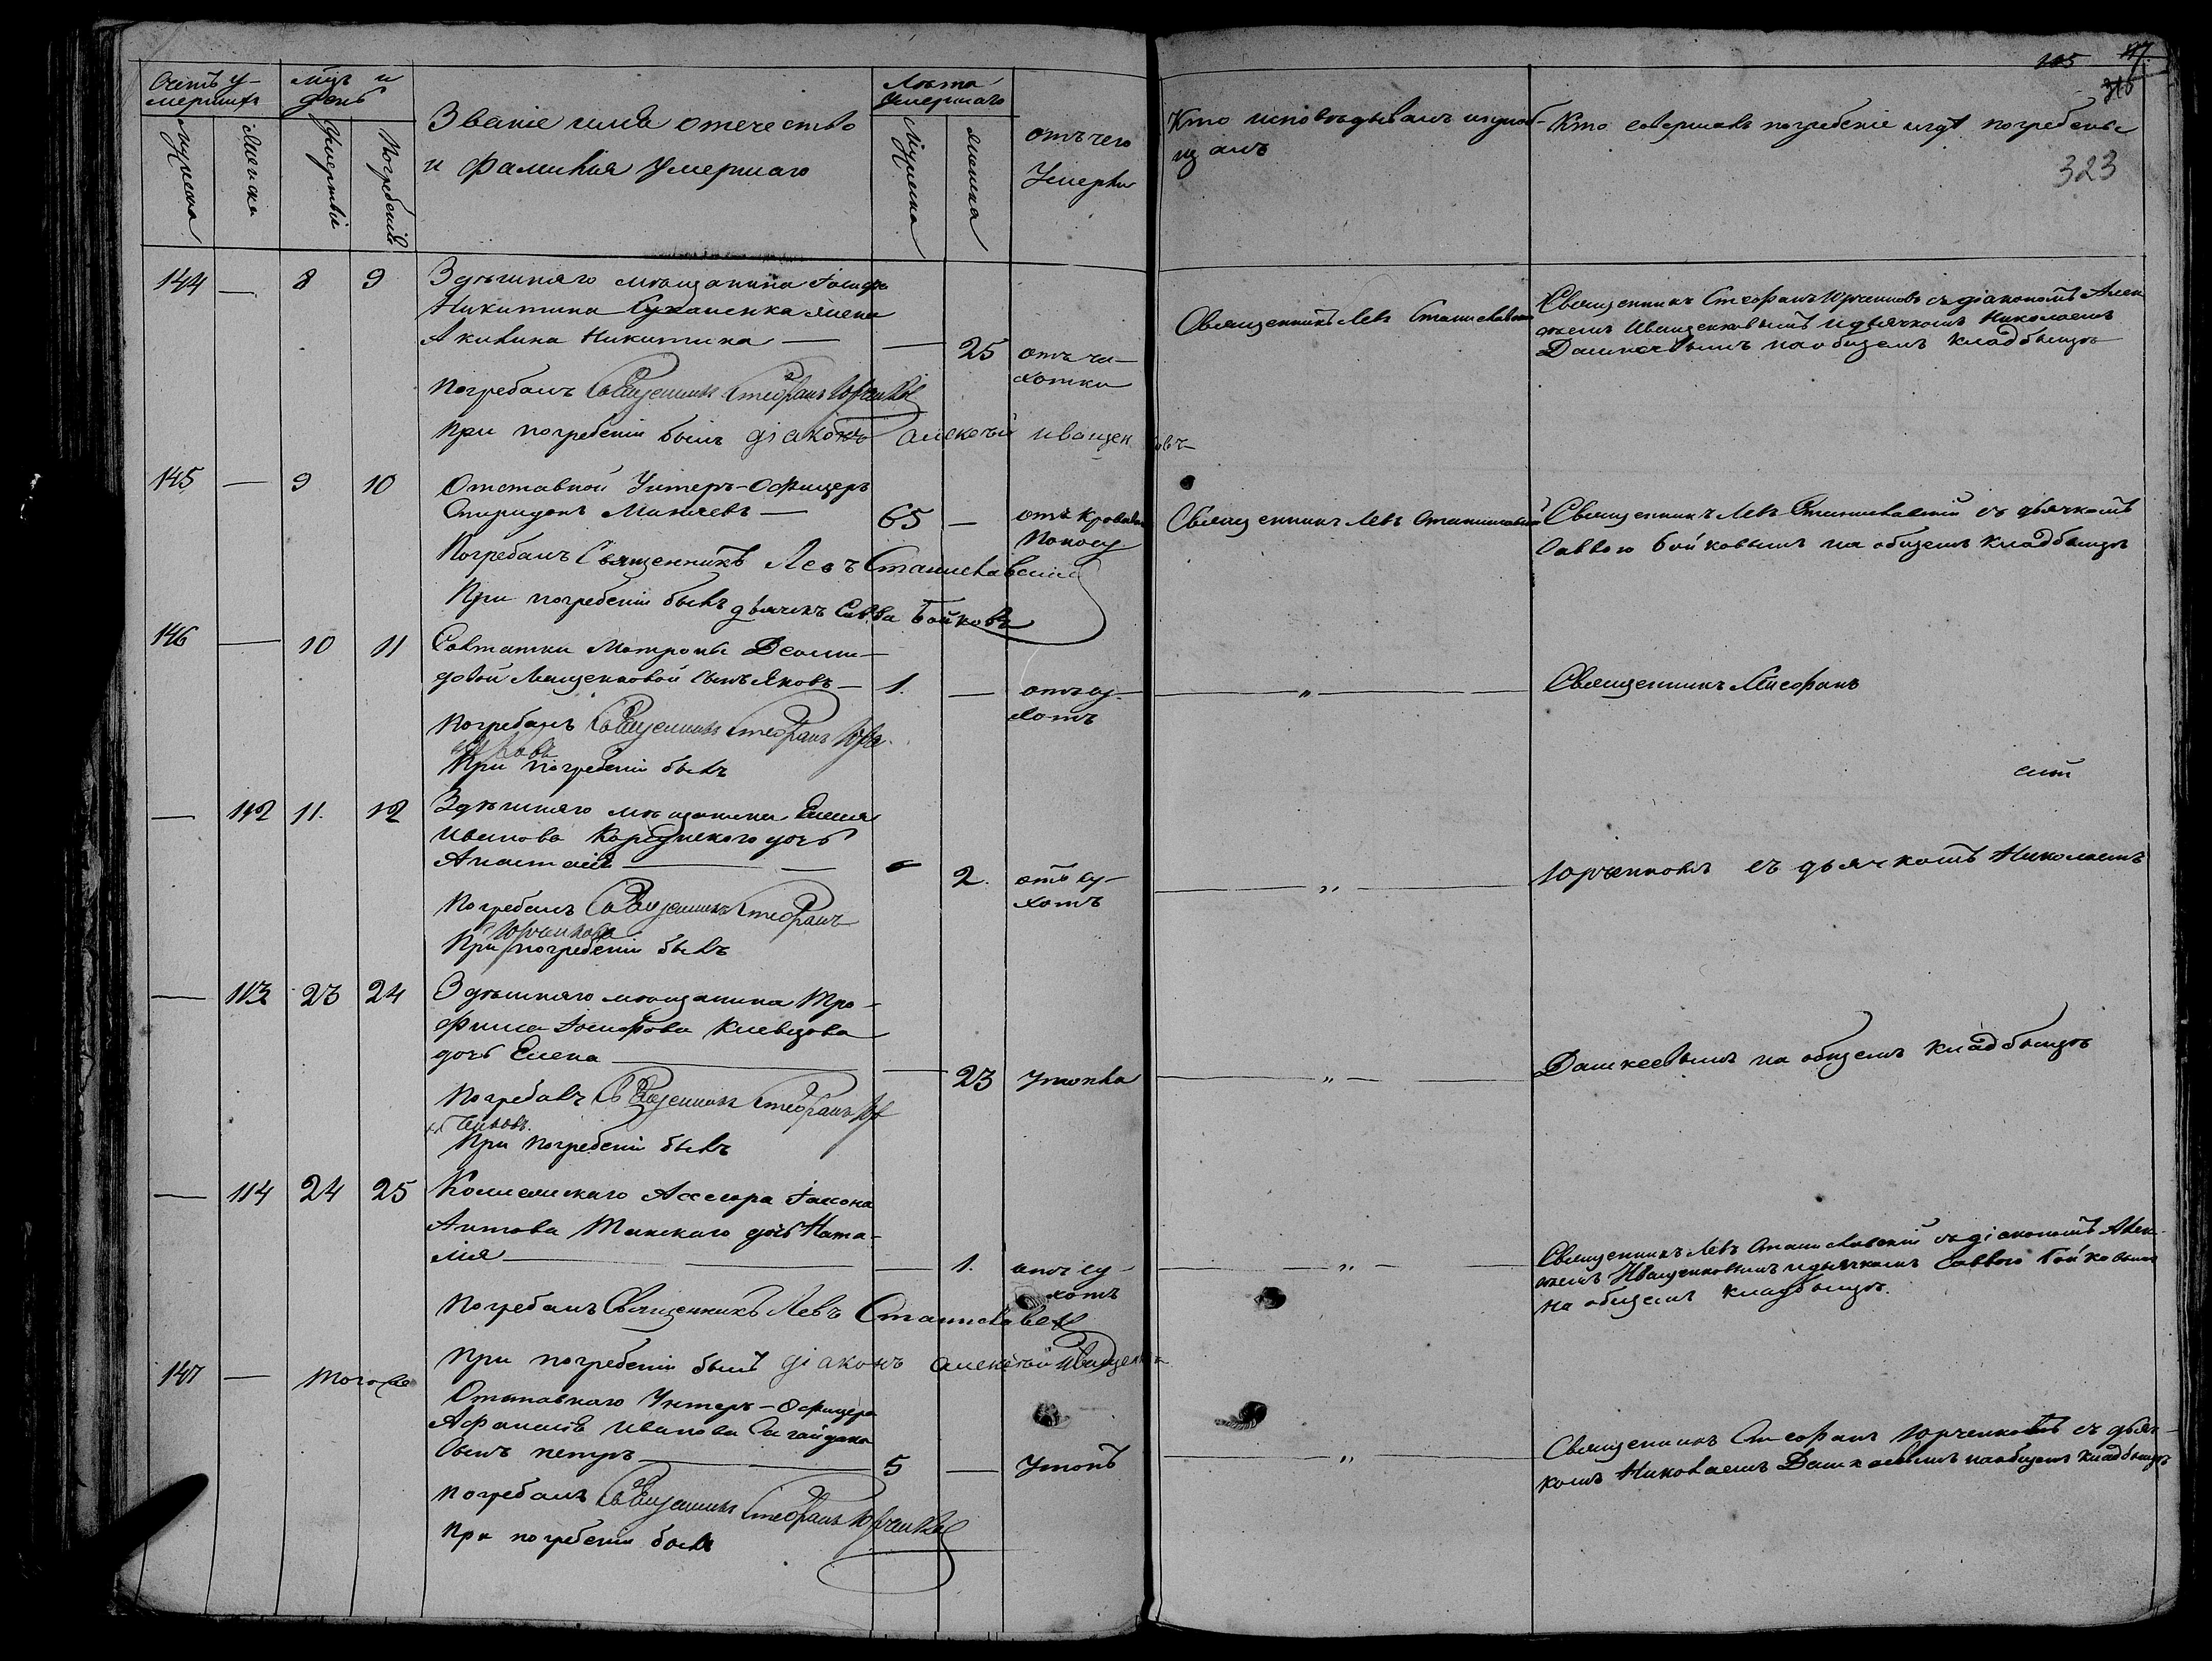 105 47
316
323
Счетъ у-
мершихъ
мцъ и
день
Званіе имя отечество
и фамилія умершаго
Лѣта
умершаго
отъ чего
умерли
Кто исповѣдывалъ и
Кто совершалъ погребеніе и гдѣ погребены
Мужеска
Женска
Умертвіи
Погребеніи
Мужеска
женска
144 — 8 9 Здѣшняго мѣщанина Іосифа
Никитина жена
Акилина Никитина — — 25 отъ ча-
хотки
Священникъ Левъ Станиславскій
Священникъ Стефанъ Юрченковъ съ діакономъ Алек
сѣемъ Иващенковымъ и дьячкомъ Николаемъ
Дашкеевымъ на общемъ кладбищѣ
Погребалъ Священникъ Стефанъ Юрченковъ
При погребеніи былъ діаконъ Алексѣй Иващенковъ
145 — 9 10 Отставной Унтеръ-Офицеръ
Спиридонъ — 65 — отъ кроваваго
поносу
Священникъ Левъ Станиславскій
Священникъ Левъ Станиславскій съ дьячкомъ
Саввою Бойковымъ на общемъ кладбищѣ
Погребалъ Священникъ Левъ Станиславскій
При погребеніи былъ дьячекъ Савва Бойковъ
146 — 10 11 Солтатки Матроны Деоми-
довой сынъ Яковъ — 1. — отъ су-
хотъ
— „ — Священникъ Стефанъ
Погребалъ Священникъ Стефанъ Юрче
нковъ
При погребеніи былъ
— 112 11. 12 Здѣшняго мѣщанина
Иванова дочь
Анастасія — — 2. отъ су-
хотъ
— „ — Юрченковъ съ дьячкомъ Николаемъ
Погребалъ Священникъ Стефанъ
Юрченковъ
При погребеніи былъ
— 113 23 24 Здѣшняго мѣщанина Тро-
фима Іосифова Клевцова
дочь Елена — — 23 утопла
— „ — Дашкеевымъ на общемъ кладбищѣ
Погребалъ Священникъ Стефанъ Юр
ченковъ.
При погребеніи былъ
— 114 24 25 Колежскаго Ассесора
Антова дочь Ната-
лія — — 1. отъ су-
хотъ
— „ — Священникъ Левъ Станиславскій съ діакономъ Алек-
сѣемъ Иващенковымъ и дьячкомъ Саввою Бойковымъ
на общемъ кладбищѣ.
Погребалъ Священникъ Левъ Станиславскій
При погребеніи былъ діаконъ Алексѣй Иващенковъ
147 — того же Отставнаго Унтеръ-Офицера
Афанасія Иванова Сагайдака
сынъ Петръ — 5 — Утопъ
— „ — Священникъ Стефанъ Юрченковъ съ дьяч-
комъ Николаемъ Дашкеевымъ на общемъ кладбищѣ
Погребалъ Священникъ Стефанъ Юрченковъ
При погребеніи былъ